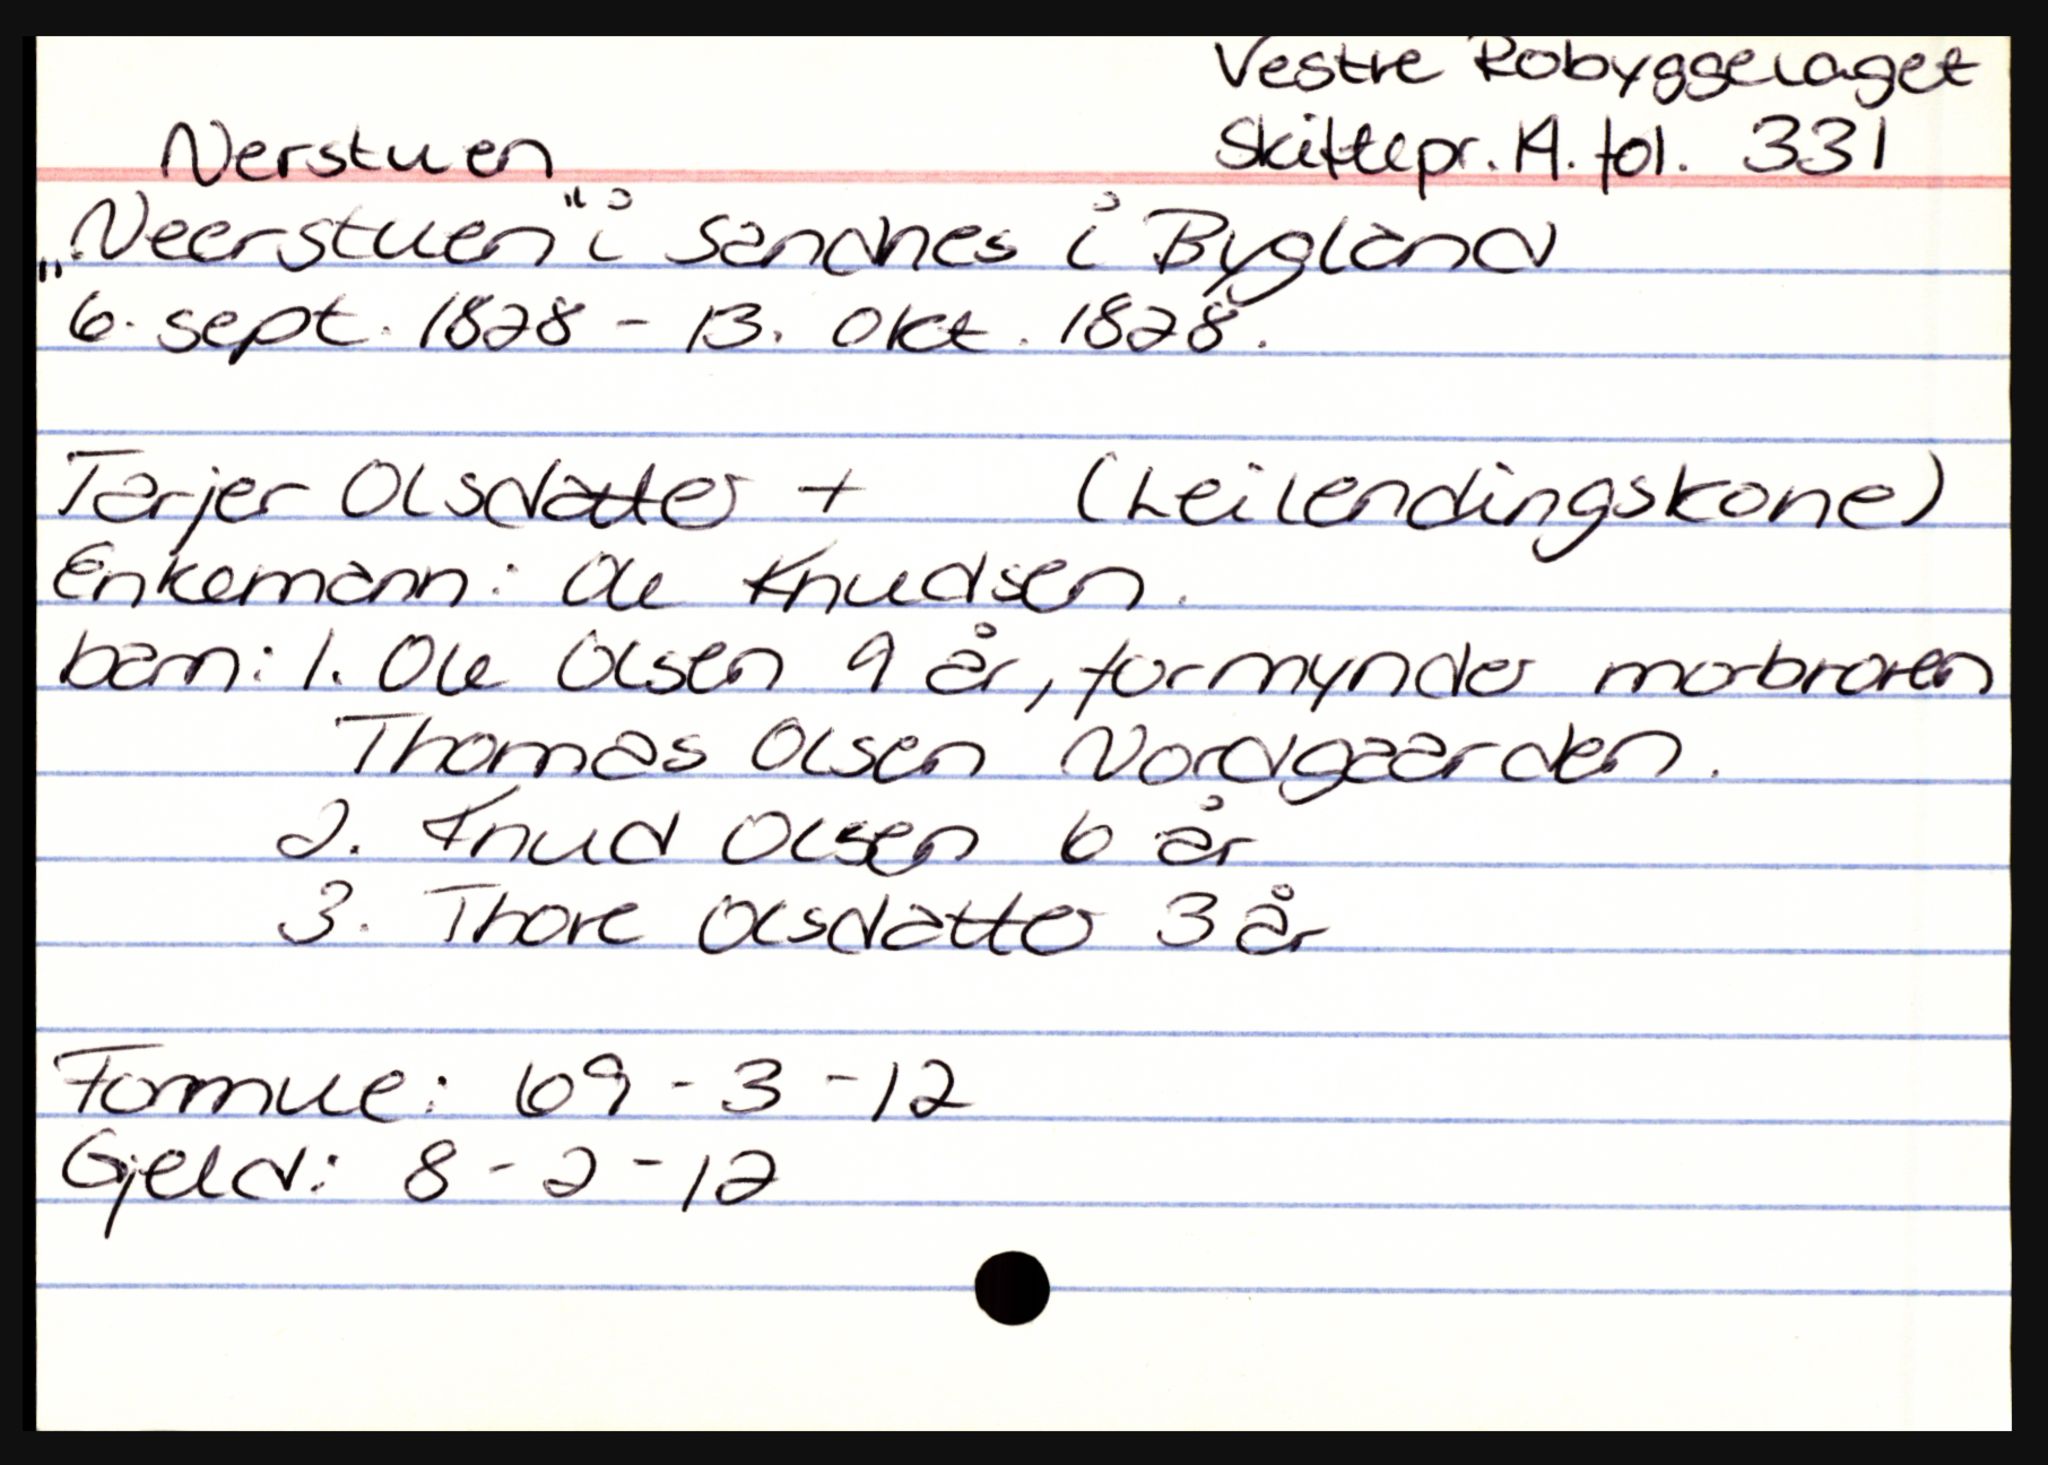 Vestre Robyggelaget
Nerstuen Skiftepr. 14. fol. 331
„Neerstuen" i Sandnes i Bygland
6. sept. 1828 - 13. okt. 1828.
Tarjer Olsdatter + (Leilendingskone)
Enkemann: Ole Knudsen.
barn: 1. Ole Olsen 9 år, formynder morbroren
Thomas Olsen Nordgaarden.
2. Knud Olsen 6 år
3. Thore Olsdatter 3 år
Formue: 69 - 3 - 12
Gjeld: 8 - 2 - 12